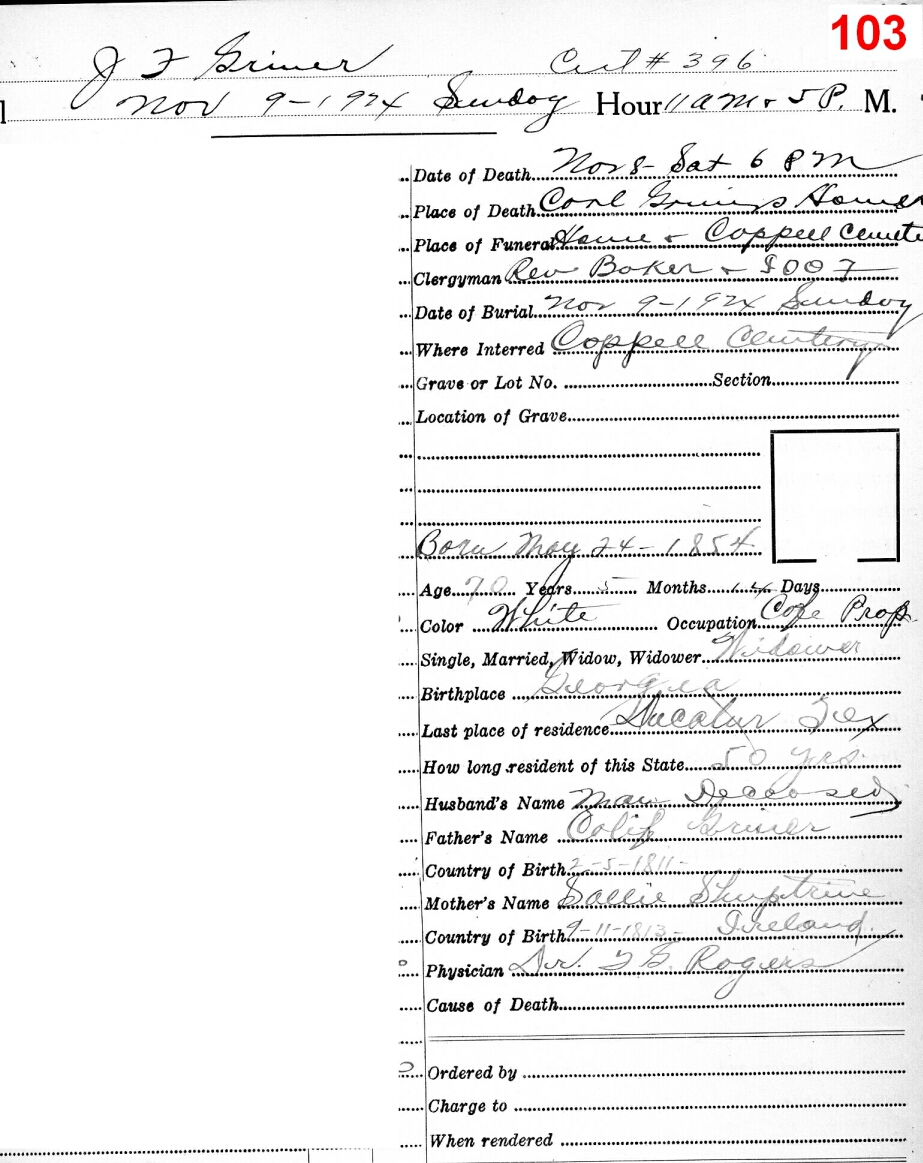 103
J F Griner Cert # 396
Nov 9-1924 Sunday Hour 11 am & 5 P. M.
Date of Death Nov 8- Sat 6 P m
Place of Death Carl Griners Home
Place of Funeral Home & Coppell Cemete
Clergyman Rev Baker & IOOF
Date of Burial Nov 9-1924 Sunday
Where Interred Coppell Cemetery
Grave or Lot No. Section
Location of Grave
Born May 24-1854
Age 70 Years 5 Months 14 Days
Color White Occupation Cafe Prop
Single, Married, Widow, Widower Widower
Birthplace Georgia
Last place of residence Decatur Tex
How long resident of this State 50 yrs.
Husband's Name Deceased
Father's Name Griner
Country of Birth 2-5-1811-
Mother's Name Sallie Shuptrine
Country of Birth 9-11-1813- Ireland.
Physician Dr. Rogers
Cause of Death
Ordered by
Charge to
When rendered